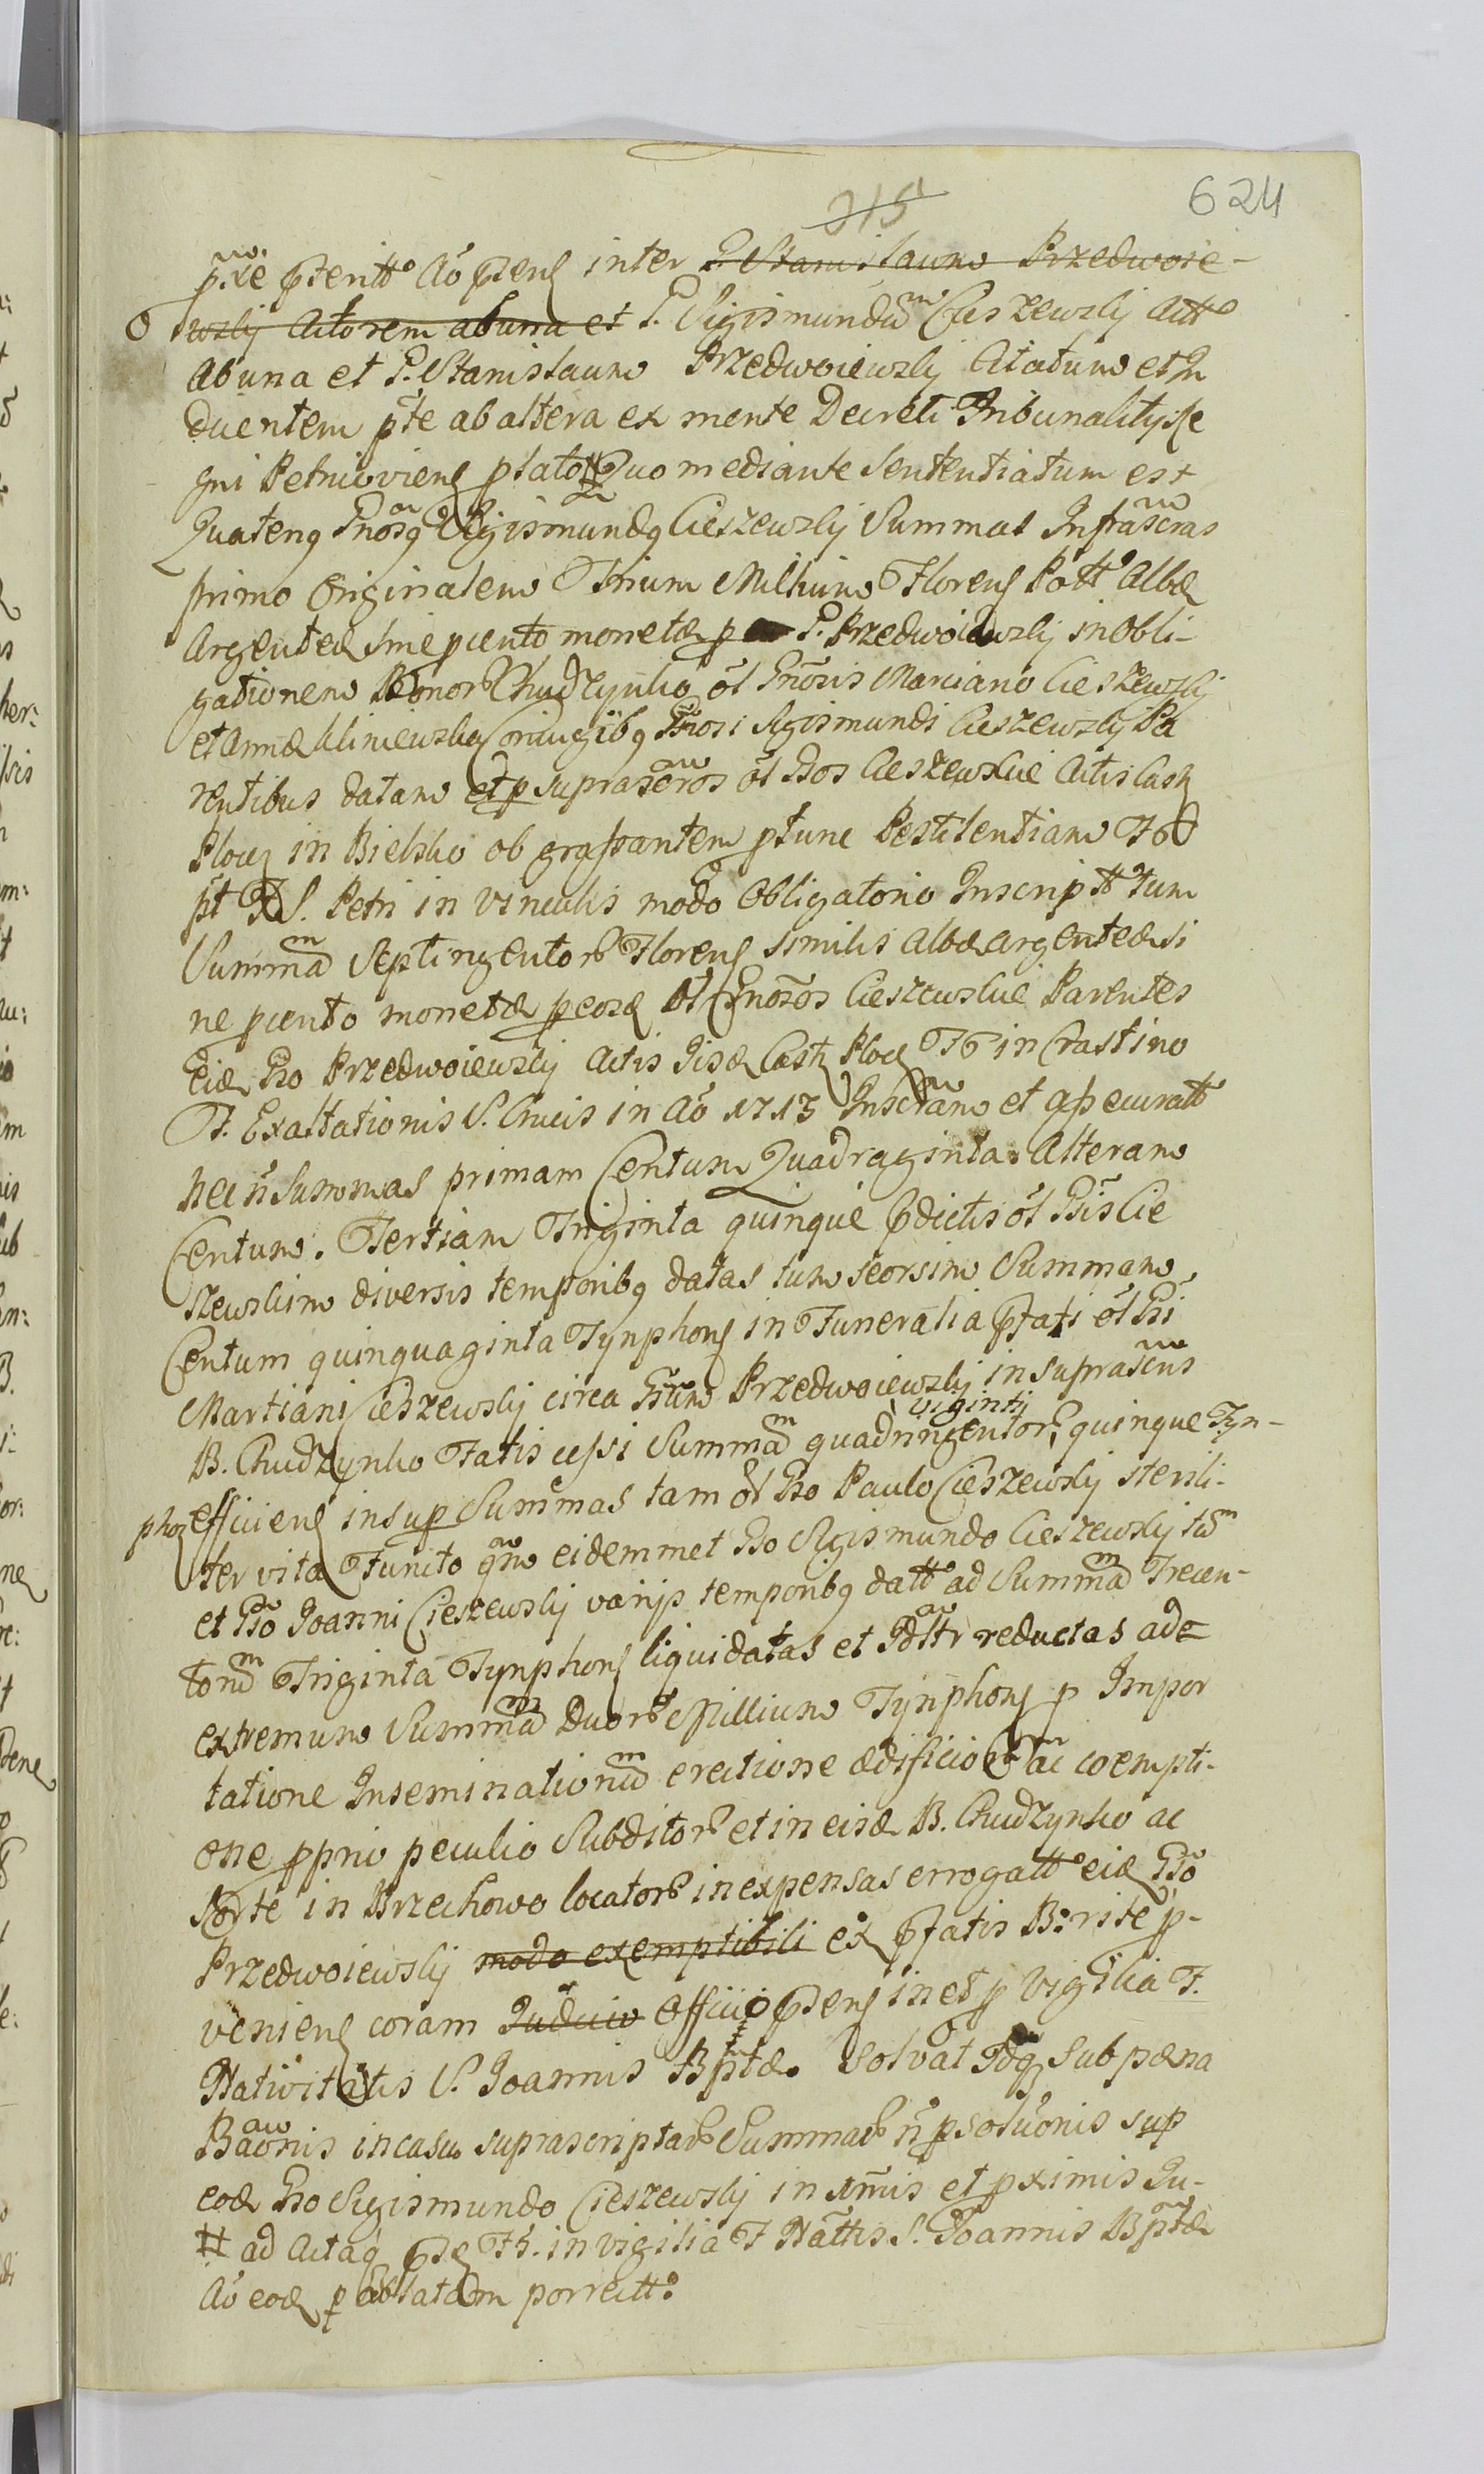 624
315
pxe pteritto Ao pteris inter P. Stanislaum Przedwoie-
wsky Actorem ab una et P. Sigismundum Cieszewskÿ Acto
Ab una et P. Stanislaum Przedwoiewskÿ Citatum et In
ducentem pte ab altera ex mente Decreti Tribunalitÿ Re
gni Petricoviens plato # Quo mediante Sententiatum est
Quatenq Gnosq Sigismundq Cieszewskÿ Summas Infrascras
primo Originalem Trium Millium Florens Poll Albæ
Argenteæ sine pcento monetæ p P. Przedwoiewskÿ in Obli-
gationem Bonor Chudzynko ol Gnosis Marciano Cieszewskÿ
et Annæ Kliniewska Coniugibq Gnosi Sigismundi Cieszewskÿ Pa
rentibus datam et p suprascros ol Gsos Cieszewskie Actis Cast
Ploc in Bielsko ob grassantem ptunc Pestilentiam F 6
pt F S. Petri in Vinculis modo Obligatorio Inscript Tum
Summam Septingentor Florens similis albæ argenteæ si
ne pcento monetæ p eosd ol Gnosos Cieszewskie Parentes
Eid Gso Przedwoiewskÿ Actis Iisd Cast Ploc F 6 in Crastino
F. Exaltationis S. Crucis in Ao 1713 Inscram et assecuratt
nec n Summas primam Centum Quadraginta. Alteram
Centum. Tertiam Triginta quinque pdictis ol Gsis Cie
szewskim diversis temporibq datas tum seorsim Summam
Centum quinquaginta Tynphons in Funeralia pfati ol Gsi
Martiani Cieszewskÿ circa Gsum Przedwoiewskÿ in suprascris
vigintÿ
B. Chudzynko Fatis cessi Summam quadringentor, quinque Tyn-
phos efficiens insup Summas tam ol Gso Paulo Cieszewskÿ sterili-
ter vita Functo qm eidemmet Gso Sigismundo Cieszewskÿ tum
et Gso Joanni Cieszewskÿ varÿs temporibq datt ad Summam Trecen-
torum Triginta Tynphons liquidatas et reductas ad
extremum Summam Duor Millium Tynphons p Impor
tatione Inseminationum erectione ædificior ac coempti-
one pprio peculio Subditor et in eisd B. Chudzynko ac
Sorte in Brzechowo locator in expensas errogatt eid Gso
Przedwoiewskÿ modo exemptibili ex pfatis B: rite p-
veniens coram Iudicio Officio pteris in et p Vigilia F.
Nativitatis S. Joannis Bptæ. Solvat Idq sub pæna
Baonis in casu suprascriptar Summar n psoluonis sup
eod Gso Sigismundo Cieszewskÿ in Amis et pximis Iu-
# ad Acta F 5. in vigilia F Nattis S. Joannis Bptæ
Ao eod p oblatam porrectt.